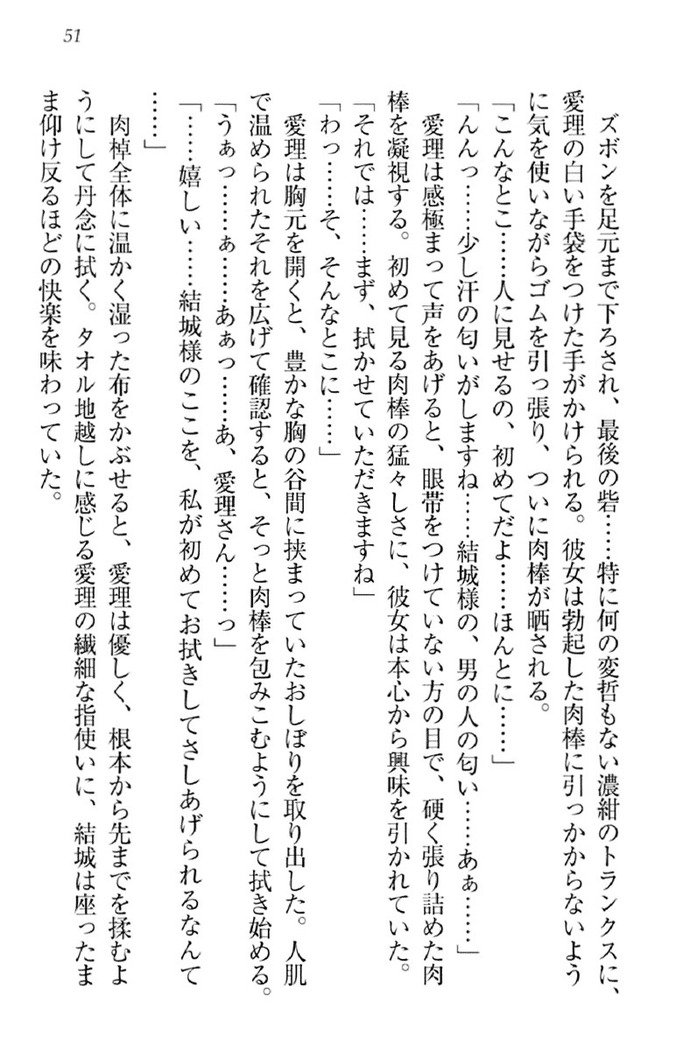 51
ズボンを足元まで下ろされ、最後の砦……特に何の変哲もない濃紺のトランクスに、
愛理の白い手袋をつけた手がかけられる。彼女は勃起した肉棒に引っかからないよう
に気を使いながらゴムを引っ張り、ついに肉棒が晒される。
「こんなとこ……人に見せるの、初めてだよ……ほんとに……」
「んんっ……少し汗の匂いがしますね……結城様の、男の人の匂い……あぁ……」
愛理は感極まって声をあげると、眼帯をつけていない方の目で、硬く張り詰めた肉
棒を凝視する。初めて見る肉棒の猛々しさに、彼女は本心から興味を引かれていた。
「それでは……まず、拭かせていただきますね」
「わっ……そ、そんなとこに……」
愛理は胸元を開くと、豊かな胸の谷間に挟まっていたおしぼりを取り出した。人肌
で温められたそれを広げて確認すると、そっと肉棒を包みこむようにして拭き始める。
「うぁっ……ぁ……あぁっ……あ、愛理さん……っ」
「……嬉しい……結城様のここを、私が初めてお拭きしてさしあげられるなんて
……」
肉棹全体に温かく湿った布をかぶせると、愛理は優しく、根本から先までを揉むよ
うにして丹念に拭く。タオル地越しに感じる愛理の繊細な指使いに、結城は座ったま
ま仰け反るほどの快楽を味わっていた。